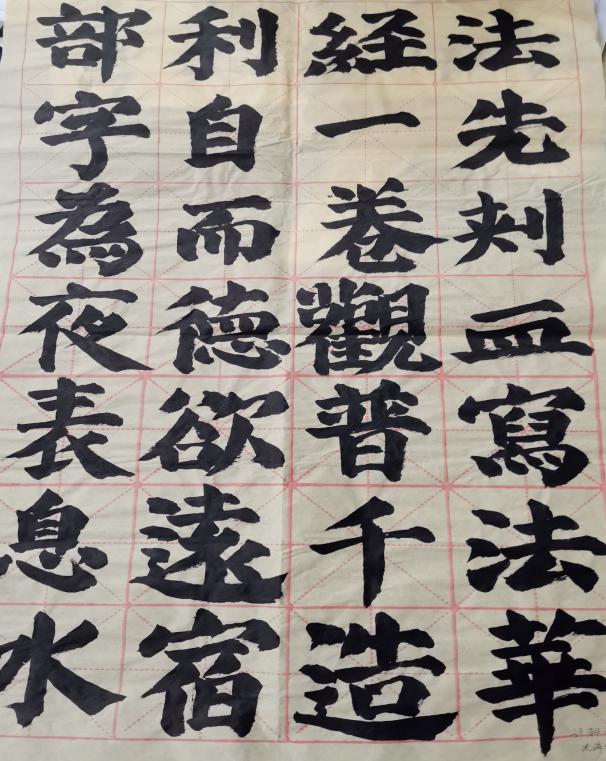 法先刾血寫法華
経一卷觀普千造
利自而德欲遠宿
部字為夜表息水